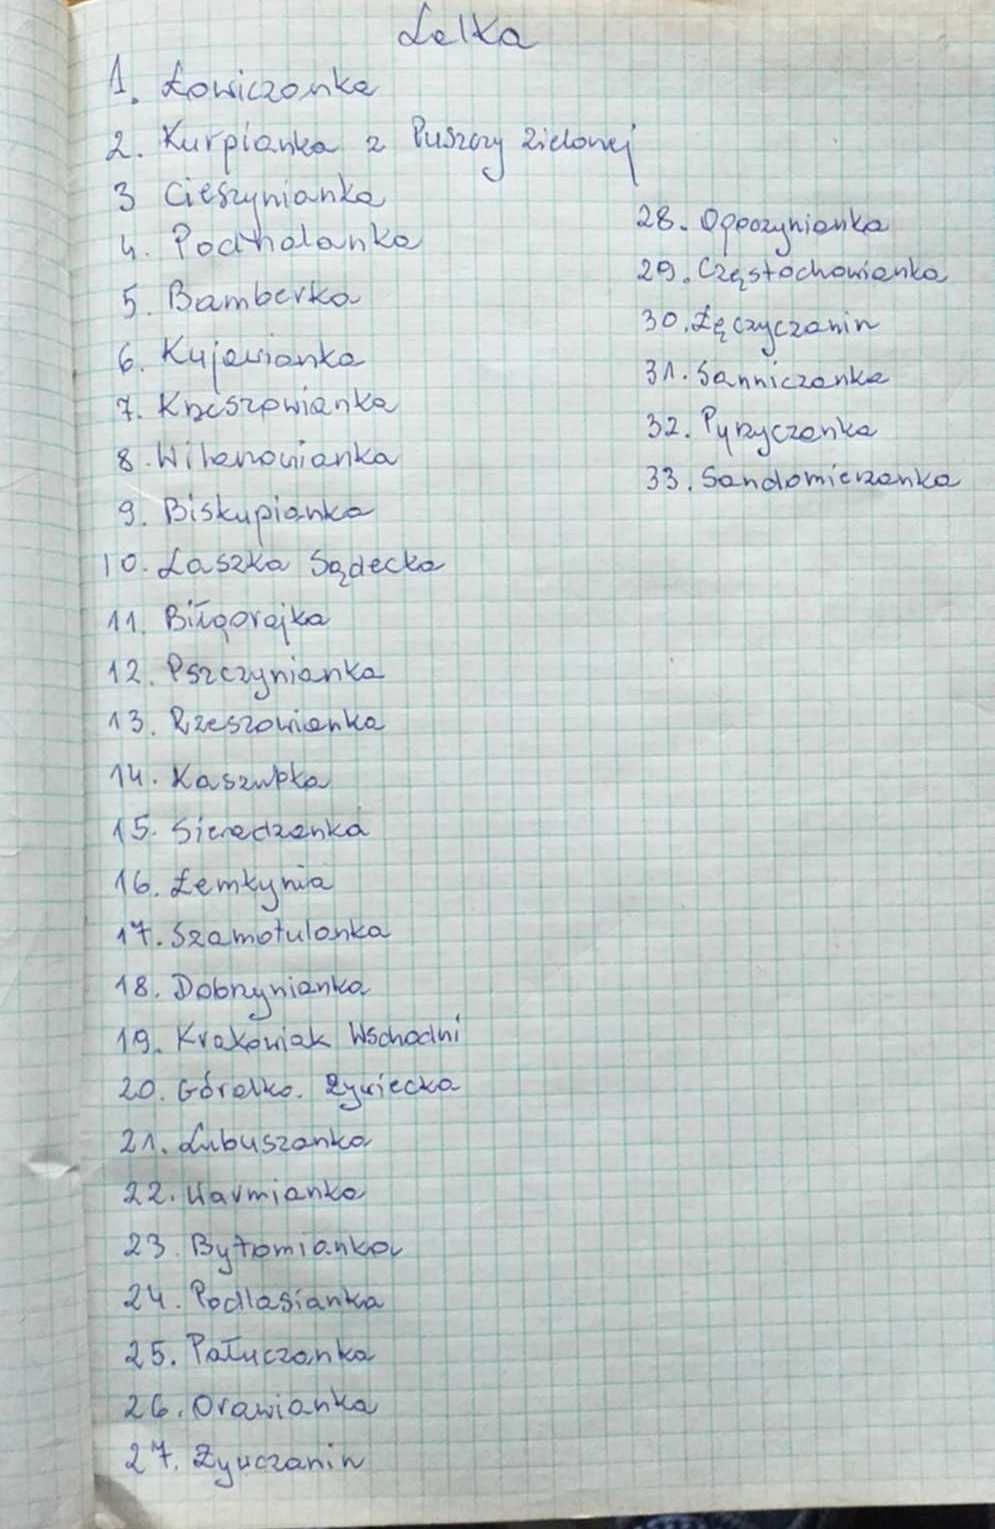 Lalka
1. Łowiczonka
2. Kurpianka z Puszczy Zielonej
3 Cieszynianka
4. Podhalanka
5. Bamberka
6. Kujawianka
7. Krzeszowianka
8. Wilanowianka
9. Biskupianka
10. Laszka Sądecka
11. Biłgorajka
12. Pszczynianka
13. Rzeszowianka
14. Kaszubka
15. Sieradzanka
16. Łemkynia
17. Szamotulanka
18. Dobrzynianka
19. Krakowiak Wschodni
20. Góralka. Żywiecka
21. Lubuszanka
22. Warmianka
23. Bytomianka
24. Podlasianka
25. Pałuczanka
26. Orawianka
27. Żywczanin
28. Opoczynianka
29. Częstochowianka
30. Łęczyczanin
31. Sanniczanka
32. Pyrzyczanka
33. Sandomierzanka